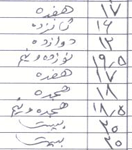 هفده ۱۷
شانزده ۱۶
دوازده ۱۲
نوزده و نیم ۱۹/۵
هفده ۱۷
هجده ۱۸
هجده و نیم ۱۸/۵
بیست ۲۰
بیست ۲۰